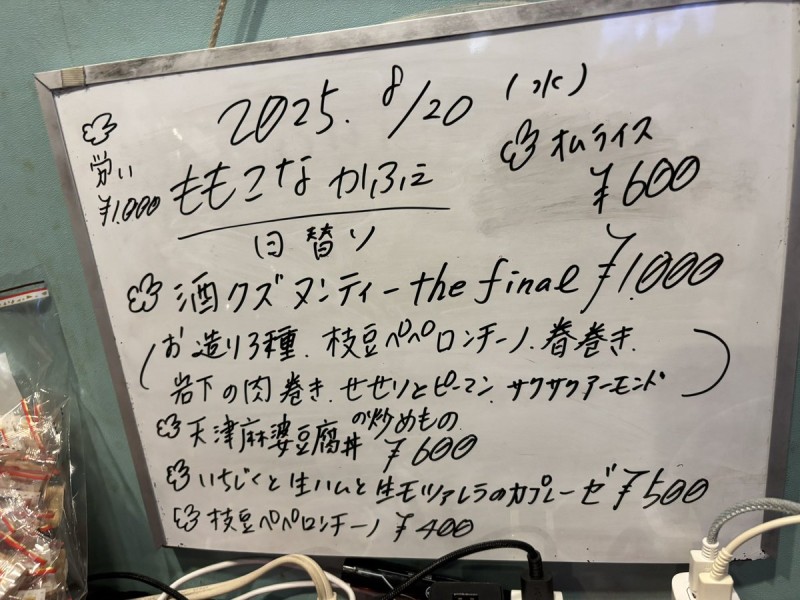 2025. 8/20 (水)
労い
¥1,000
ももこな かふぇ
オムライス
¥600
日替り
酒クズ ヌンティー the final ¥1,000
(お造り3種、枝豆ペペロンチーノ、春巻き、
岩下の肉巻き、せせりとピーマン サクサクアーモンド)
の炒めもの
天津麻婆豆腐丼 ¥600
いちじくと生ハムと生モツァレラのカプレーゼ ¥500
枝豆ペペロンチーノ ¥400